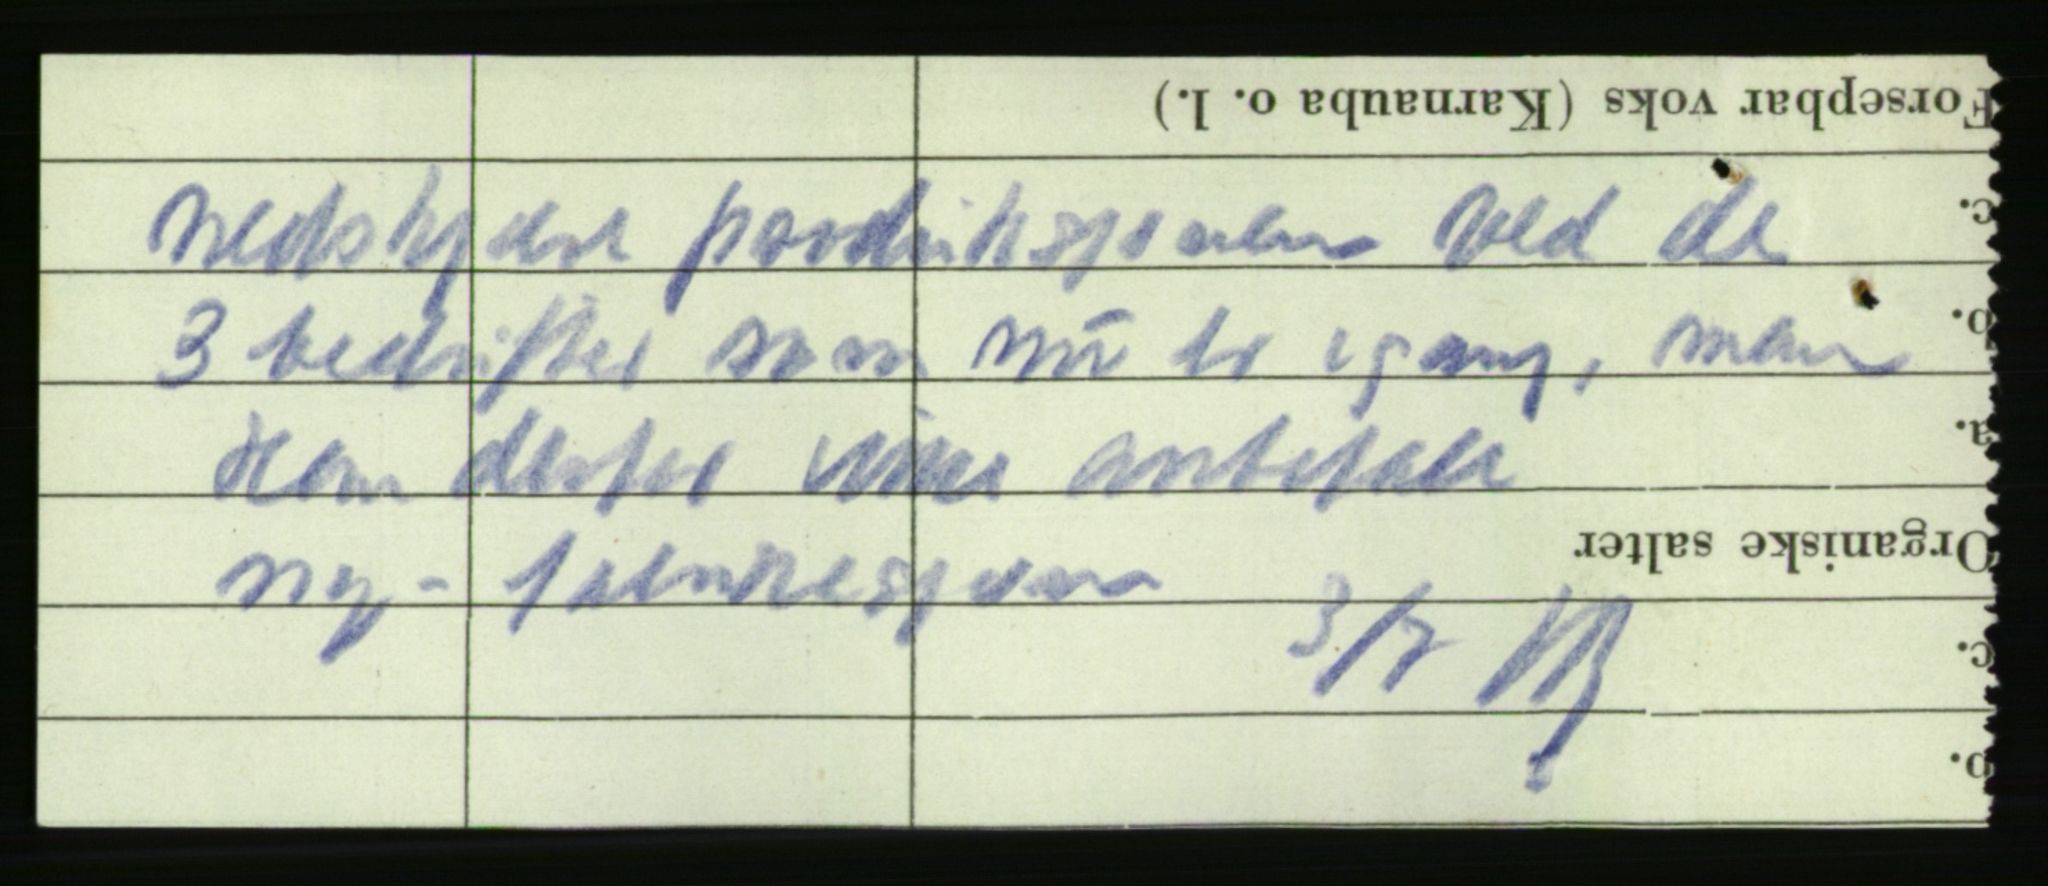 Forsepbar voks (Karnauba o. l.)
c.
nedskjære produksjonen ved de
b.
3 bedrifter som nu er igang, man
a.
kan derfor ikke anbefale
Organiske salter
ny-
3/7
c.
b.